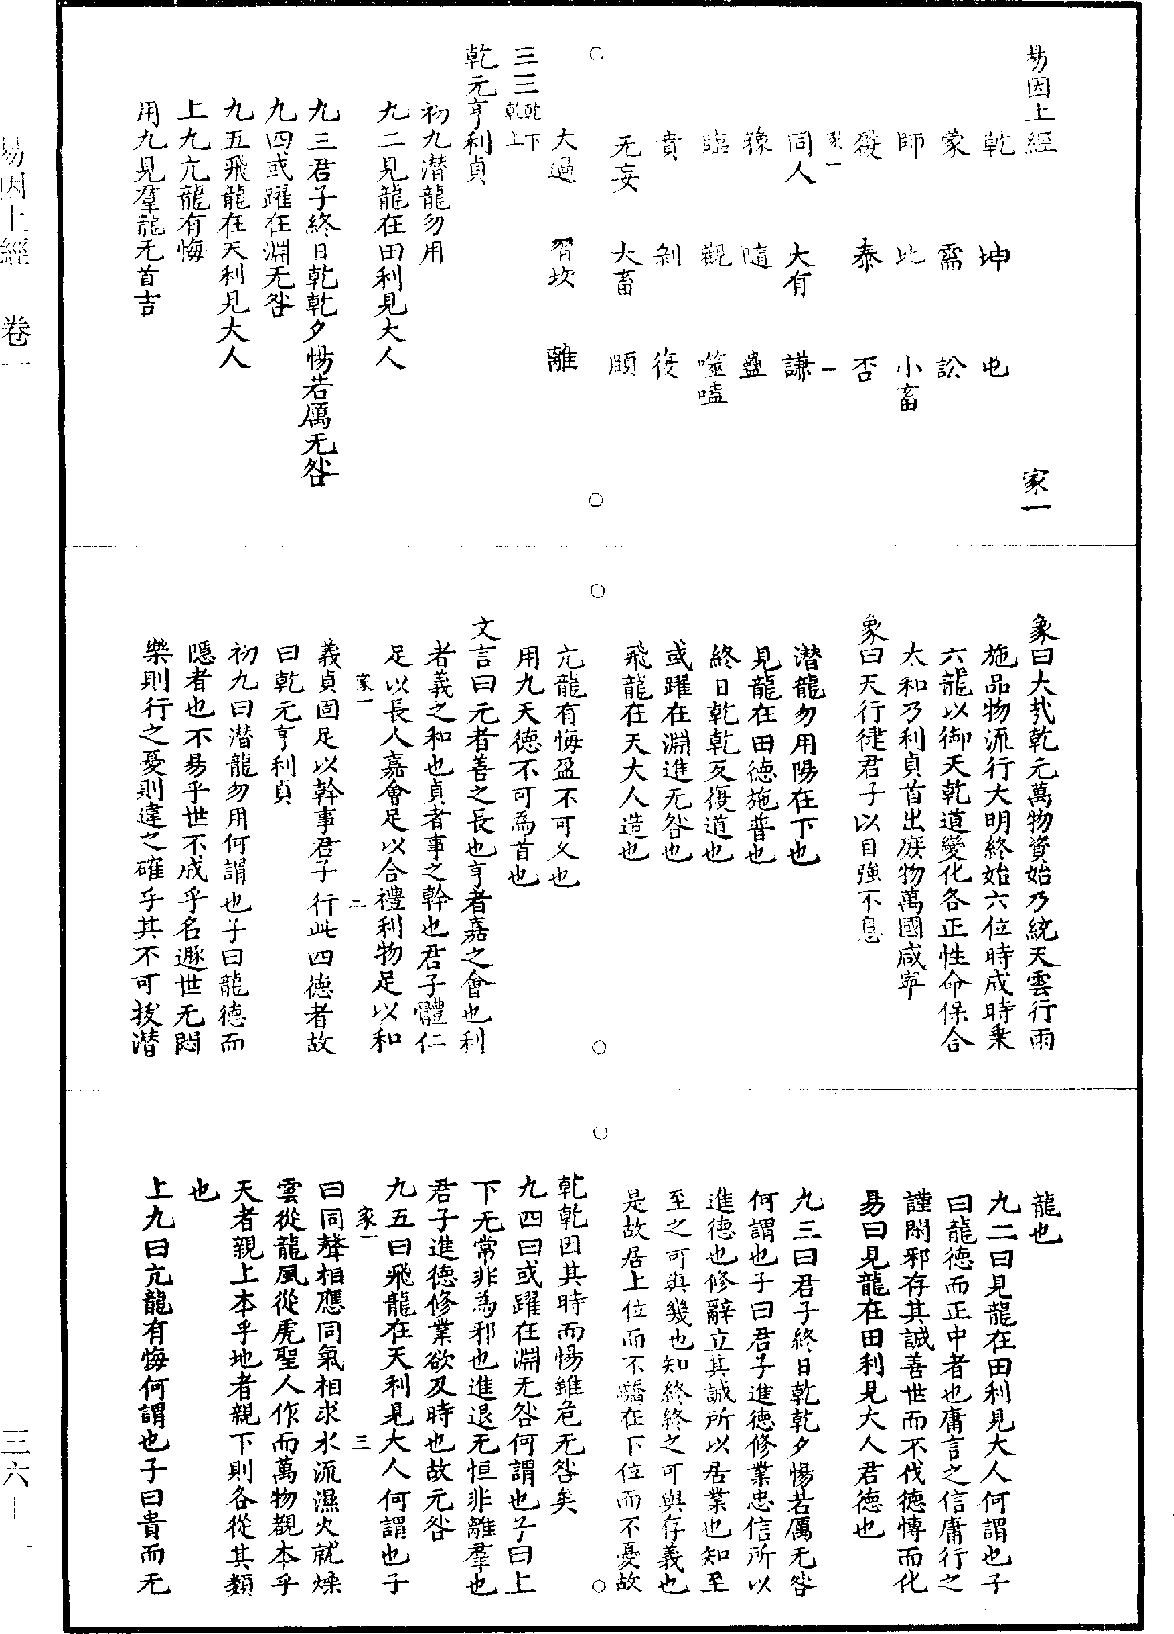 易因上經　家一
乾　坤　屯
蒙　需　訟
師　比　小畜
履　泰　否
家一　一
同人　大有　謙
豫　隨　蠱
臨　觀　噬嗑
賁　剝　復
无妄　大畜　頤
大過　習坎　離
☰☰乾下乾上
乾元亨利貞
初九潜龍勿用
九二見龍在田利見大人
九三君子終日乾乾夕惕若厲无咎
九四或躍在淵无咎
九五飛龍在天利見大人
上九亢龍有悔
用九見羣龍无首吉
彖曰大哉乾元萬物資始乃統天雲行雨
施品物流行大明終始六位時成時乗
六龍以御天乾道變化各正性命保合
大和乃利貞首出庶物萬國咸寜
象曰天行徤君子以自強不息
潜龍勿用陽在下也
見龍在田德施普也
終日乾乾反復道也
或躍在淵進无咎也
飛龍在天大人造也
亢龍有悔盈不可乆也
用九天德不可為首也
文言曰元者善之長也亨者嘉之會也利
者義之和也貞者事之幹也君子體仁
足以長人嘉會足以合禮利物足以和
家一　二
義貞固足以幹事君子行此四德者故
曰乾元亨利貞
初九曰潜龍勿用何謂也子曰龍德而
隱者也不易乎世不成乎名遯世无悶
樂則行之憂則違之確乎其不可拔潜
龍也
九二曰見龍在田利見大人何謂也子
曰龍德而正中者也庸言之信庸行之
謹閑邪存其誠善世而不伐德博而化
易曰見龍在田利見大人君德也
九三曰君子終日乾乾夕惕若厲无咎
何謂也子曰君子進德修業忠信所以
進德也修辭立其誠所以居業也知至
至之可與幾也知終終之可與存義也
是故居上位而不驕在下位而不憂故
乾乾因其時而惕雖危无咎矣
九四曰或躍在淵无咎何謂也子曰上
下无常非為邪也進退无恒非離羣也
君子進德修業欲及時也故无咎
九五曰飛龍在天利見大人何謂也子
家一　三
曰同聲相應同氣相求水流濕火就燥
雲從龍風從虎聖人作而萬物覩本乎
天者親上本乎地者親下則各從其類
也
上九曰亢龍有悔何謂也子曰貴而无
易因上經　卷一　三六—